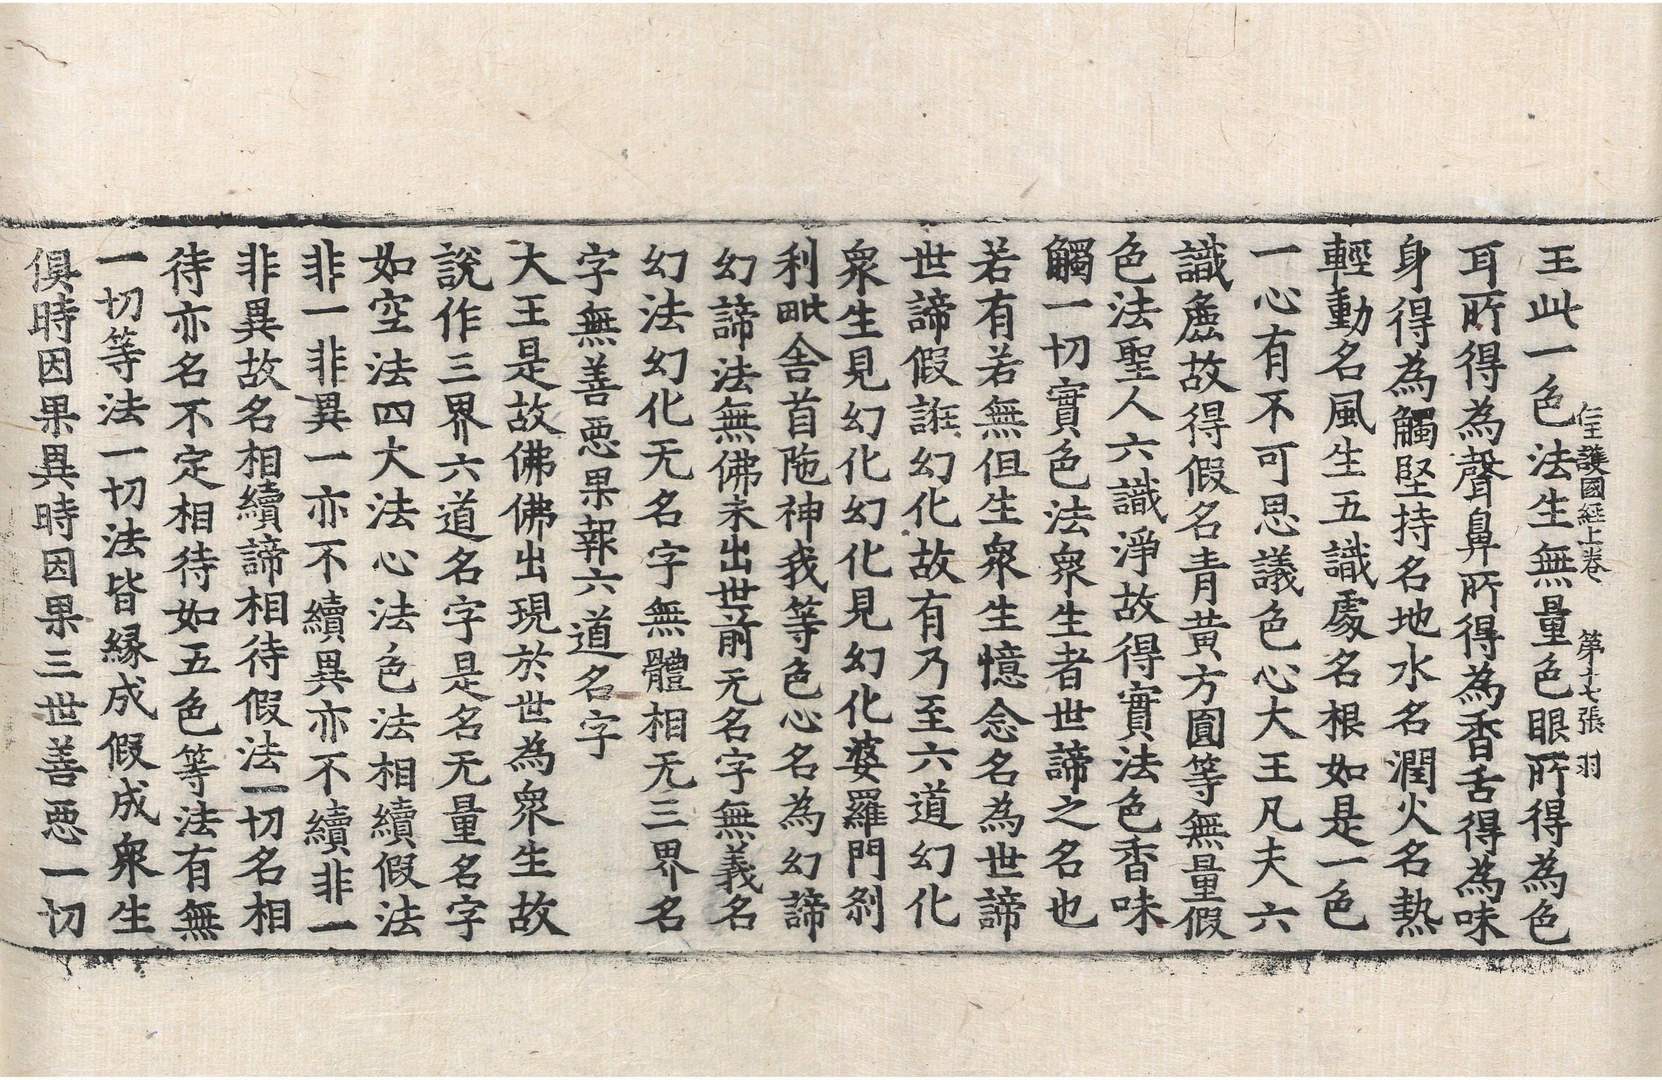 仁王護國經上卷 第十七張 羽
王此一色法生無量色眼所得為色
耳所得為聲鼻所得為香舌得為味
身得為觸堅持名地水名潤火名熱
輕動名風生五識處名根如是一色
一心有不可思議色心大王凡夫六
識麁故得假名青黃方圓等無量假
色法聖人六識淨故得實法色香味
觸一切實色法衆生者世諦之名也
若有若無但生衆生憶念名為世諦
世諦假誑幻化故有乃至六道幻化
衆生見幻化幻化見幻化婆羅門剎
利毗舍首陁神我等色心名為幻諦
幻諦法無佛未出世前无名字無義名
幻法幻化无名字無體相无三界名
字無善惡果報六道名字
大王是故佛佛出現於世為衆生故
說作三界六道名字是名无量名字
如空法四大法心法色法相續假法
非一非異一亦不續異亦不續非一
非異故名相續諦相待假法一切名相
待亦名不定相待如五色等法有無
一切等法一切法皆緣成假成衆生
俱時因果異時因果三世善惡一切